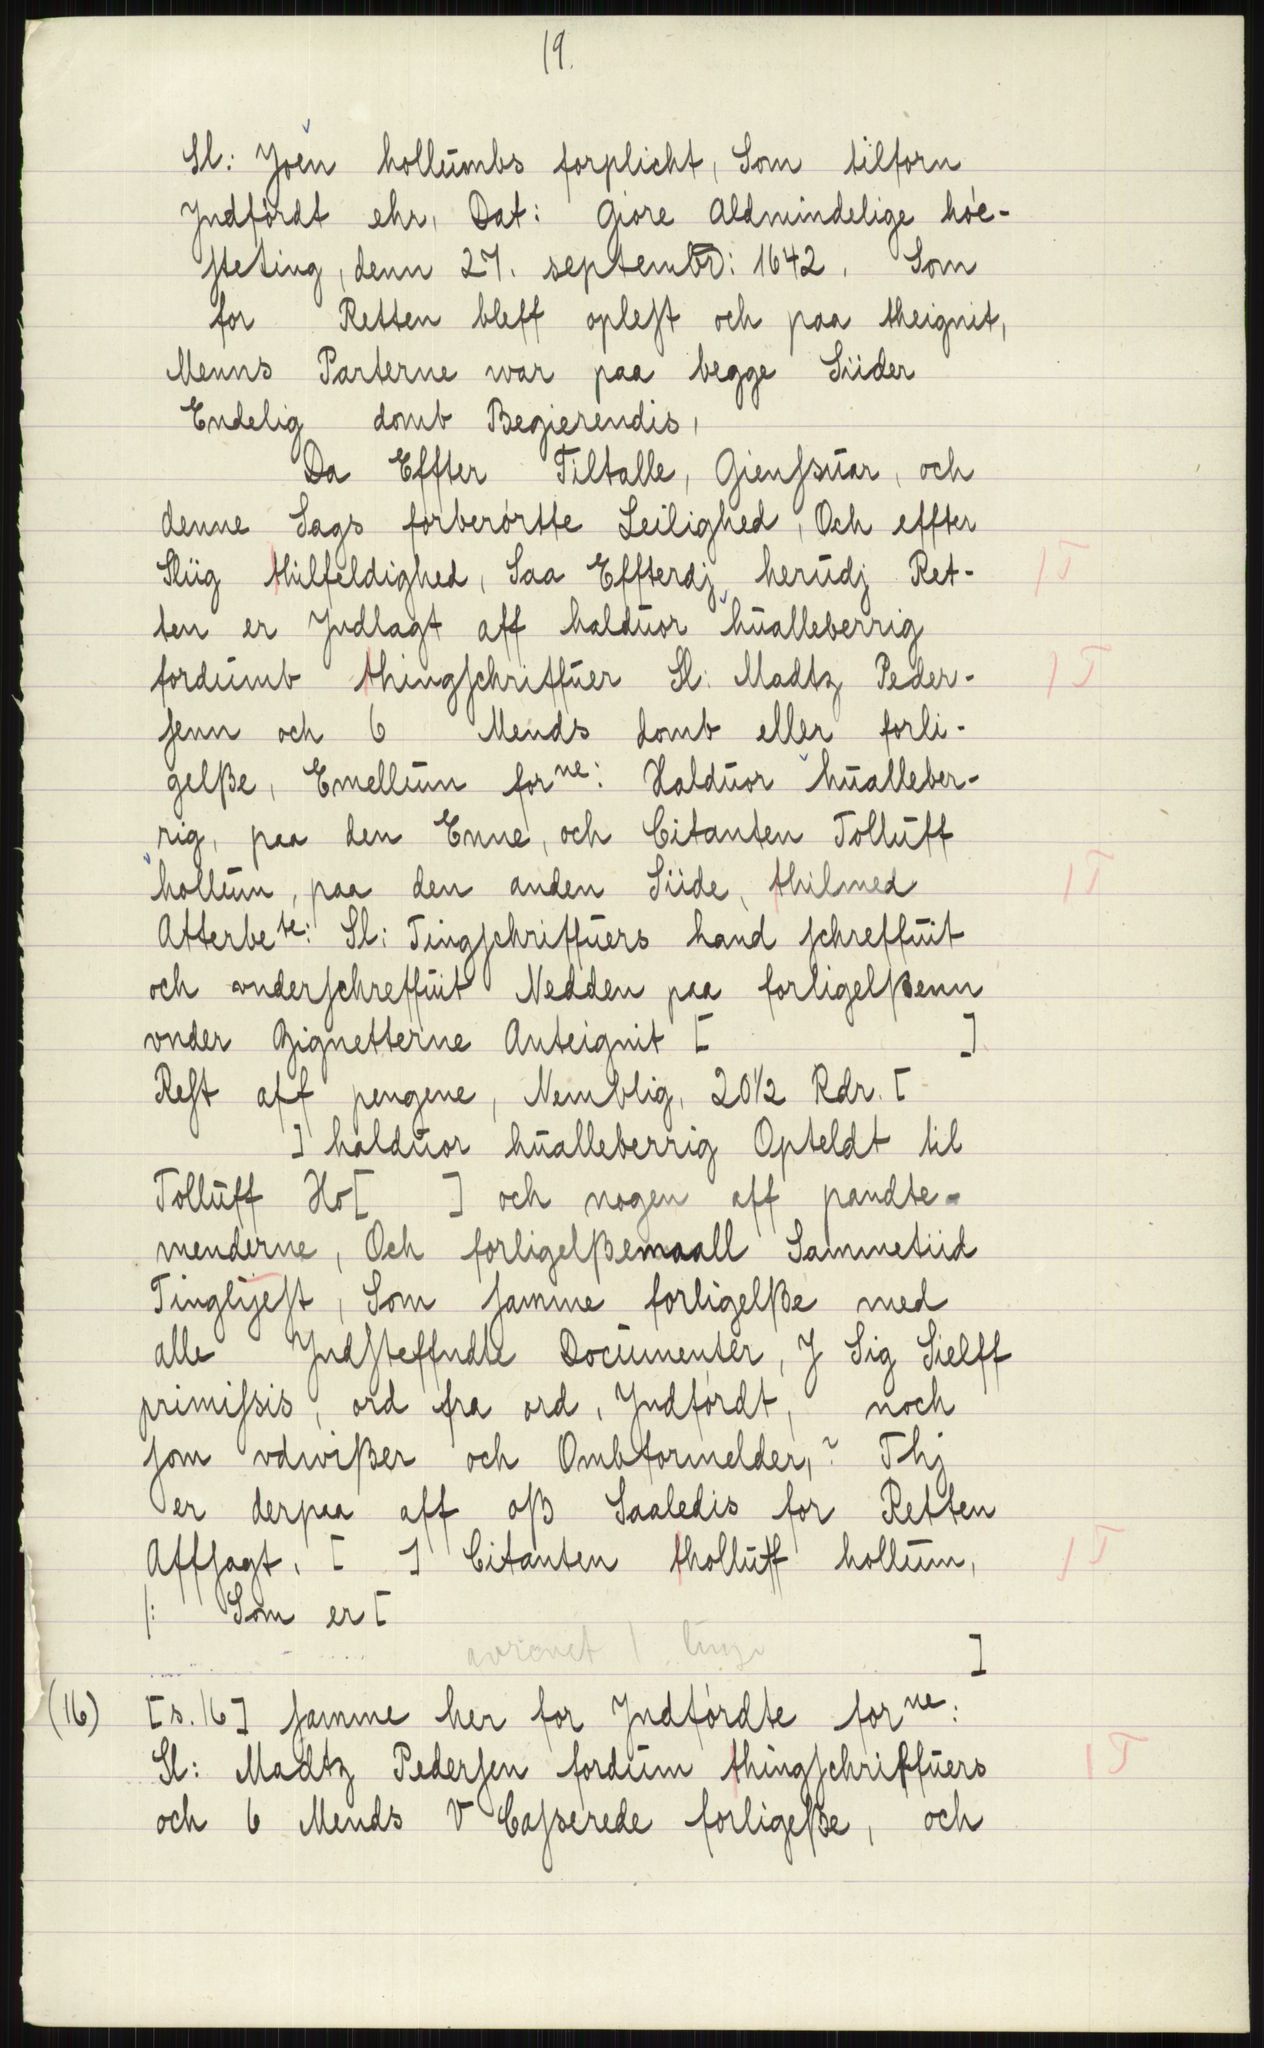 19.
Sl: Joen hollumbs forplicht, Som tilforn
Jndfördt ehr, Dat: Giøre Aldmindelige hóe-
steting, denn 27. septembr: 1642. Som
for Retten bleff oplest och paa theignit,
Menns Parterne war paa begge Siider
Endelig domb Begierendis,
Da Effter Tiltalle, Giensuar, och
denne Sags forberórtte Leilighed, Och effter
Sliig thilfeldighed, Saa Effterdj herudj Ret-
ten er Jndlagt aff halduor hualleberrig
fordumb thingschriffuer Sl: Madtz Peder-
senn och 6 Mends domb eller forli-
gelße, Emellum for ne: Halduor hualleber-
rig, paa den Enne, och Citanten Tolluff
hollum, paa den anden Siide, thilmed
Atterbe te: Sl: Tingschriffuers hand schreffuit
och underschreffuit Nedden paa forligelßenn
vnder Zignetterne Anteignit [ ]
Rest aff pengene, Nemblig, 20½ Rdr. [
] halduor hualleberrig Opteldt til
Tolluff Ho[ ] och nogen aff pandte-
menderne, Och forligelßemaall Sammetiid
Tinglyest, Som samme forligelße med
alle Jndsteffndte Documenter, J Sig Sielff
primissis, ord fra ord, Jndfórdt, noch
som vdwißer och Ombformelder,? Thj
er derpaa aff oß Saaledis for Retten
Affsagt, [ ] Citanten tholluff hollum,
/: Som er [
avrevet 1 linje
]
(16) [s. 16] samme her for Jndfórdte for ne:
Sl: Madtz Pedersen fordum thingschriffuers
och 6 Mends V Casserede forligeße, och